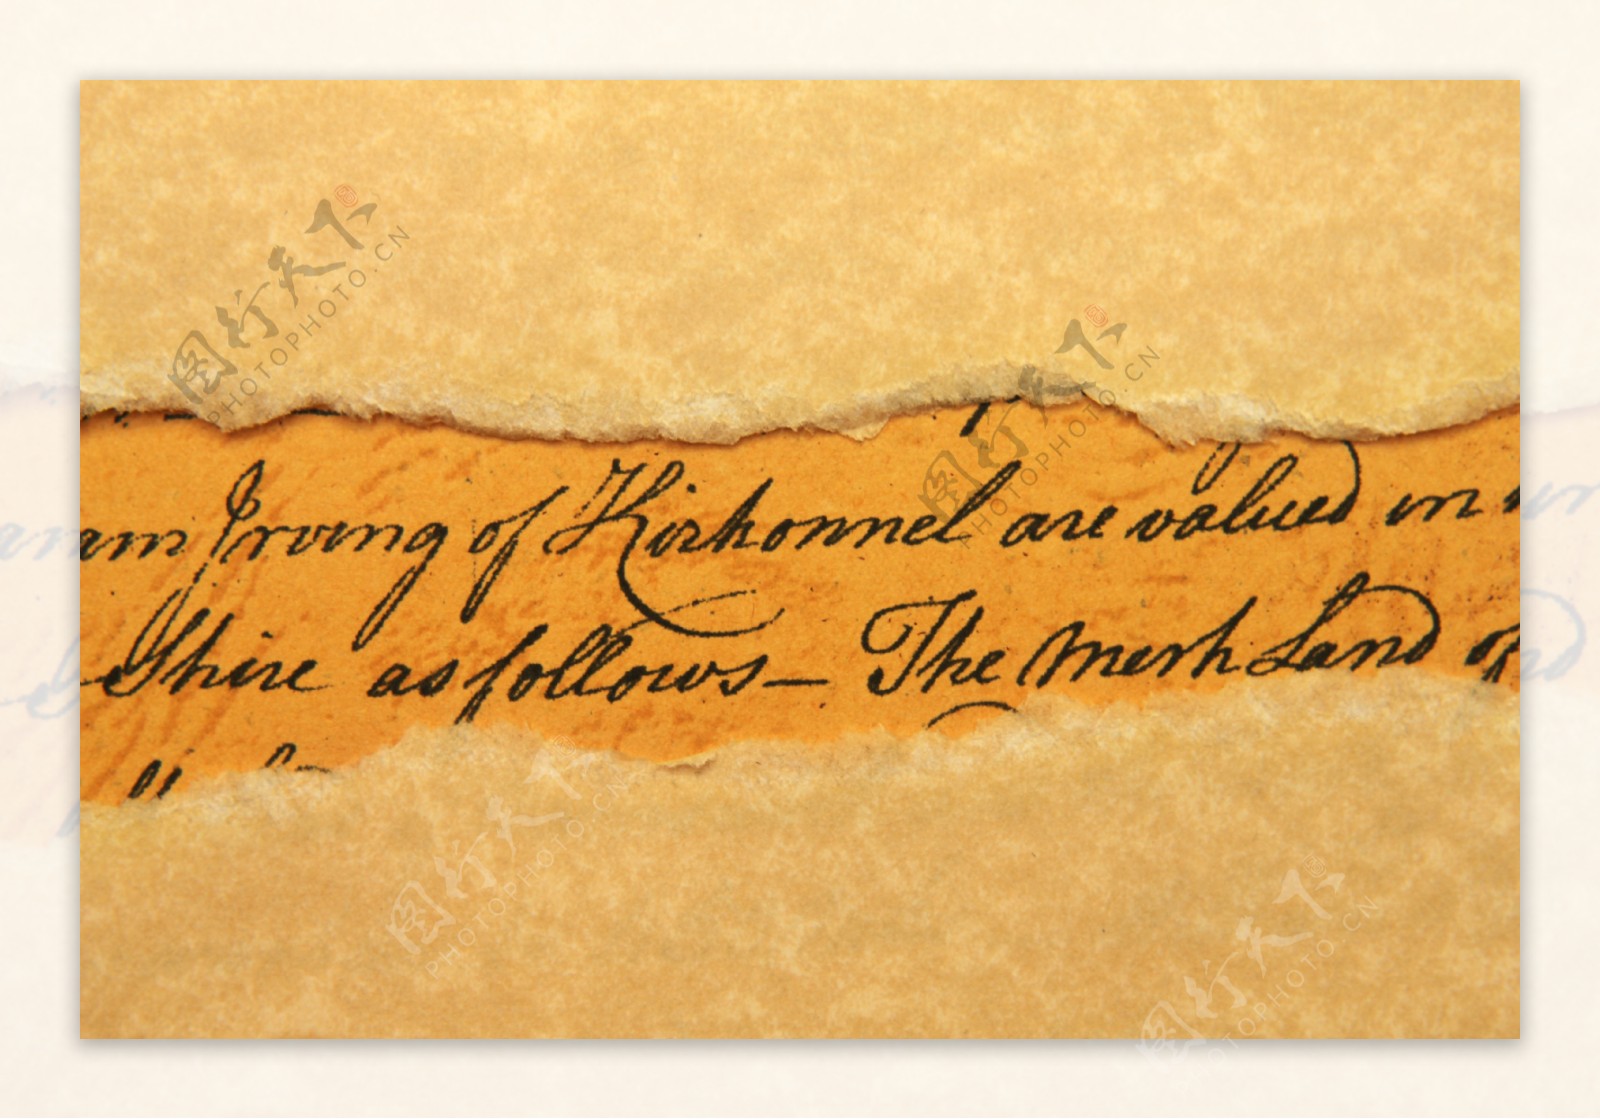 am Irving of Kirkonnel are valued in
Shire as follows — The Mersh Land of
图行天下
PHOTOPHOTO.CN
图行天下
PHOTOPHOTO.CN
图行天下
PHOTOPHOTO.CN
图行天下
PHOTOPHOTO.CN